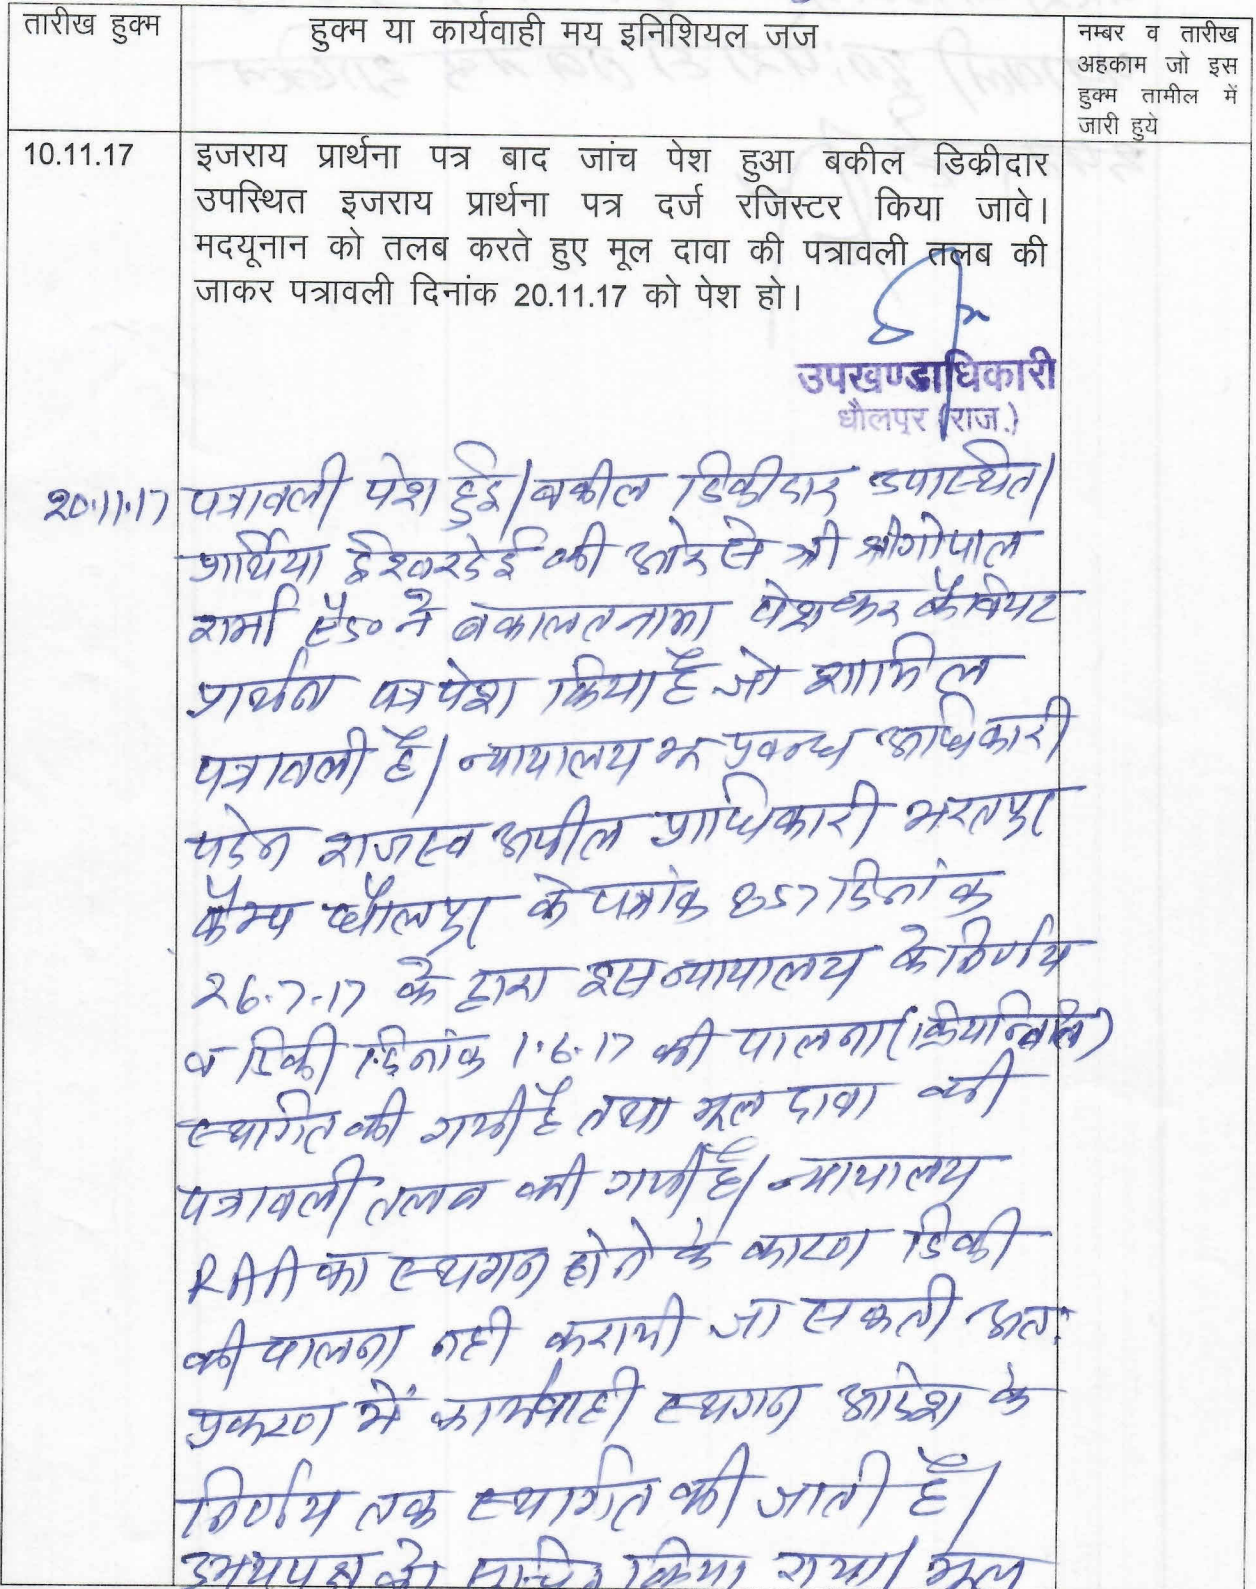 तारीख हुक्म
हुक्म या कार्यवाही मय इनिशियल जज
नम्बर व तारीख
अहकाम जो इस
हुक्म तामील में
जारी हुये
10.11.17
इजराय प्रार्थना पत्र बाद जांच पेश हुआ बकील डिक्रीदार
उपस्थित इजराय प्रार्थना पत्र दर्ज रजिस्टर किया जावे।
मदयूनान को तलब करते हुए मूल दावा की पत्रावली तलब की
जाकर पत्रावली दिनांक 20.11.17 को पेश हो।
उपखण्डाधिकारी
धौलपुर (राज.)
20.11.17
पत्रावली पेश हुई। वकील डिक्रीदार उपस्थित।
प्रार्थिया ईश्वरदेई की ओर से श्री श्रीगोपाल
शर्मा ऐड० ने वकालतनामा पेशकर कैवियट
प्रार्थना पत्र पेश किया है जो शामिल
पत्रावली है। न्यायालय भू प्रबन्ध अधिकारी
पदेन राजस्व अपील प्राधिकारी भरतपुर
कैम्प धौलपुर के पत्रांक 857 दिनांक
26.7.17 के द्वारा इस न्यायालय के निर्णय
व डिक्री दिनांक 1.6.17 की पालना (क्रियान्विति)
स्थगित की गयी है तथा मूल दावा की
पत्रावली तलब की गयी है। न्यायालय
RAA का स्थगन होने के कारण डिक्री
की पालना नही करायी जा सकती अतः
प्रकरण में कार्यवाही स्थगन आदेश के
निर्णय तक स्थगित की जाती है।
उभयपक्ष को सूचित किया गया। मूल